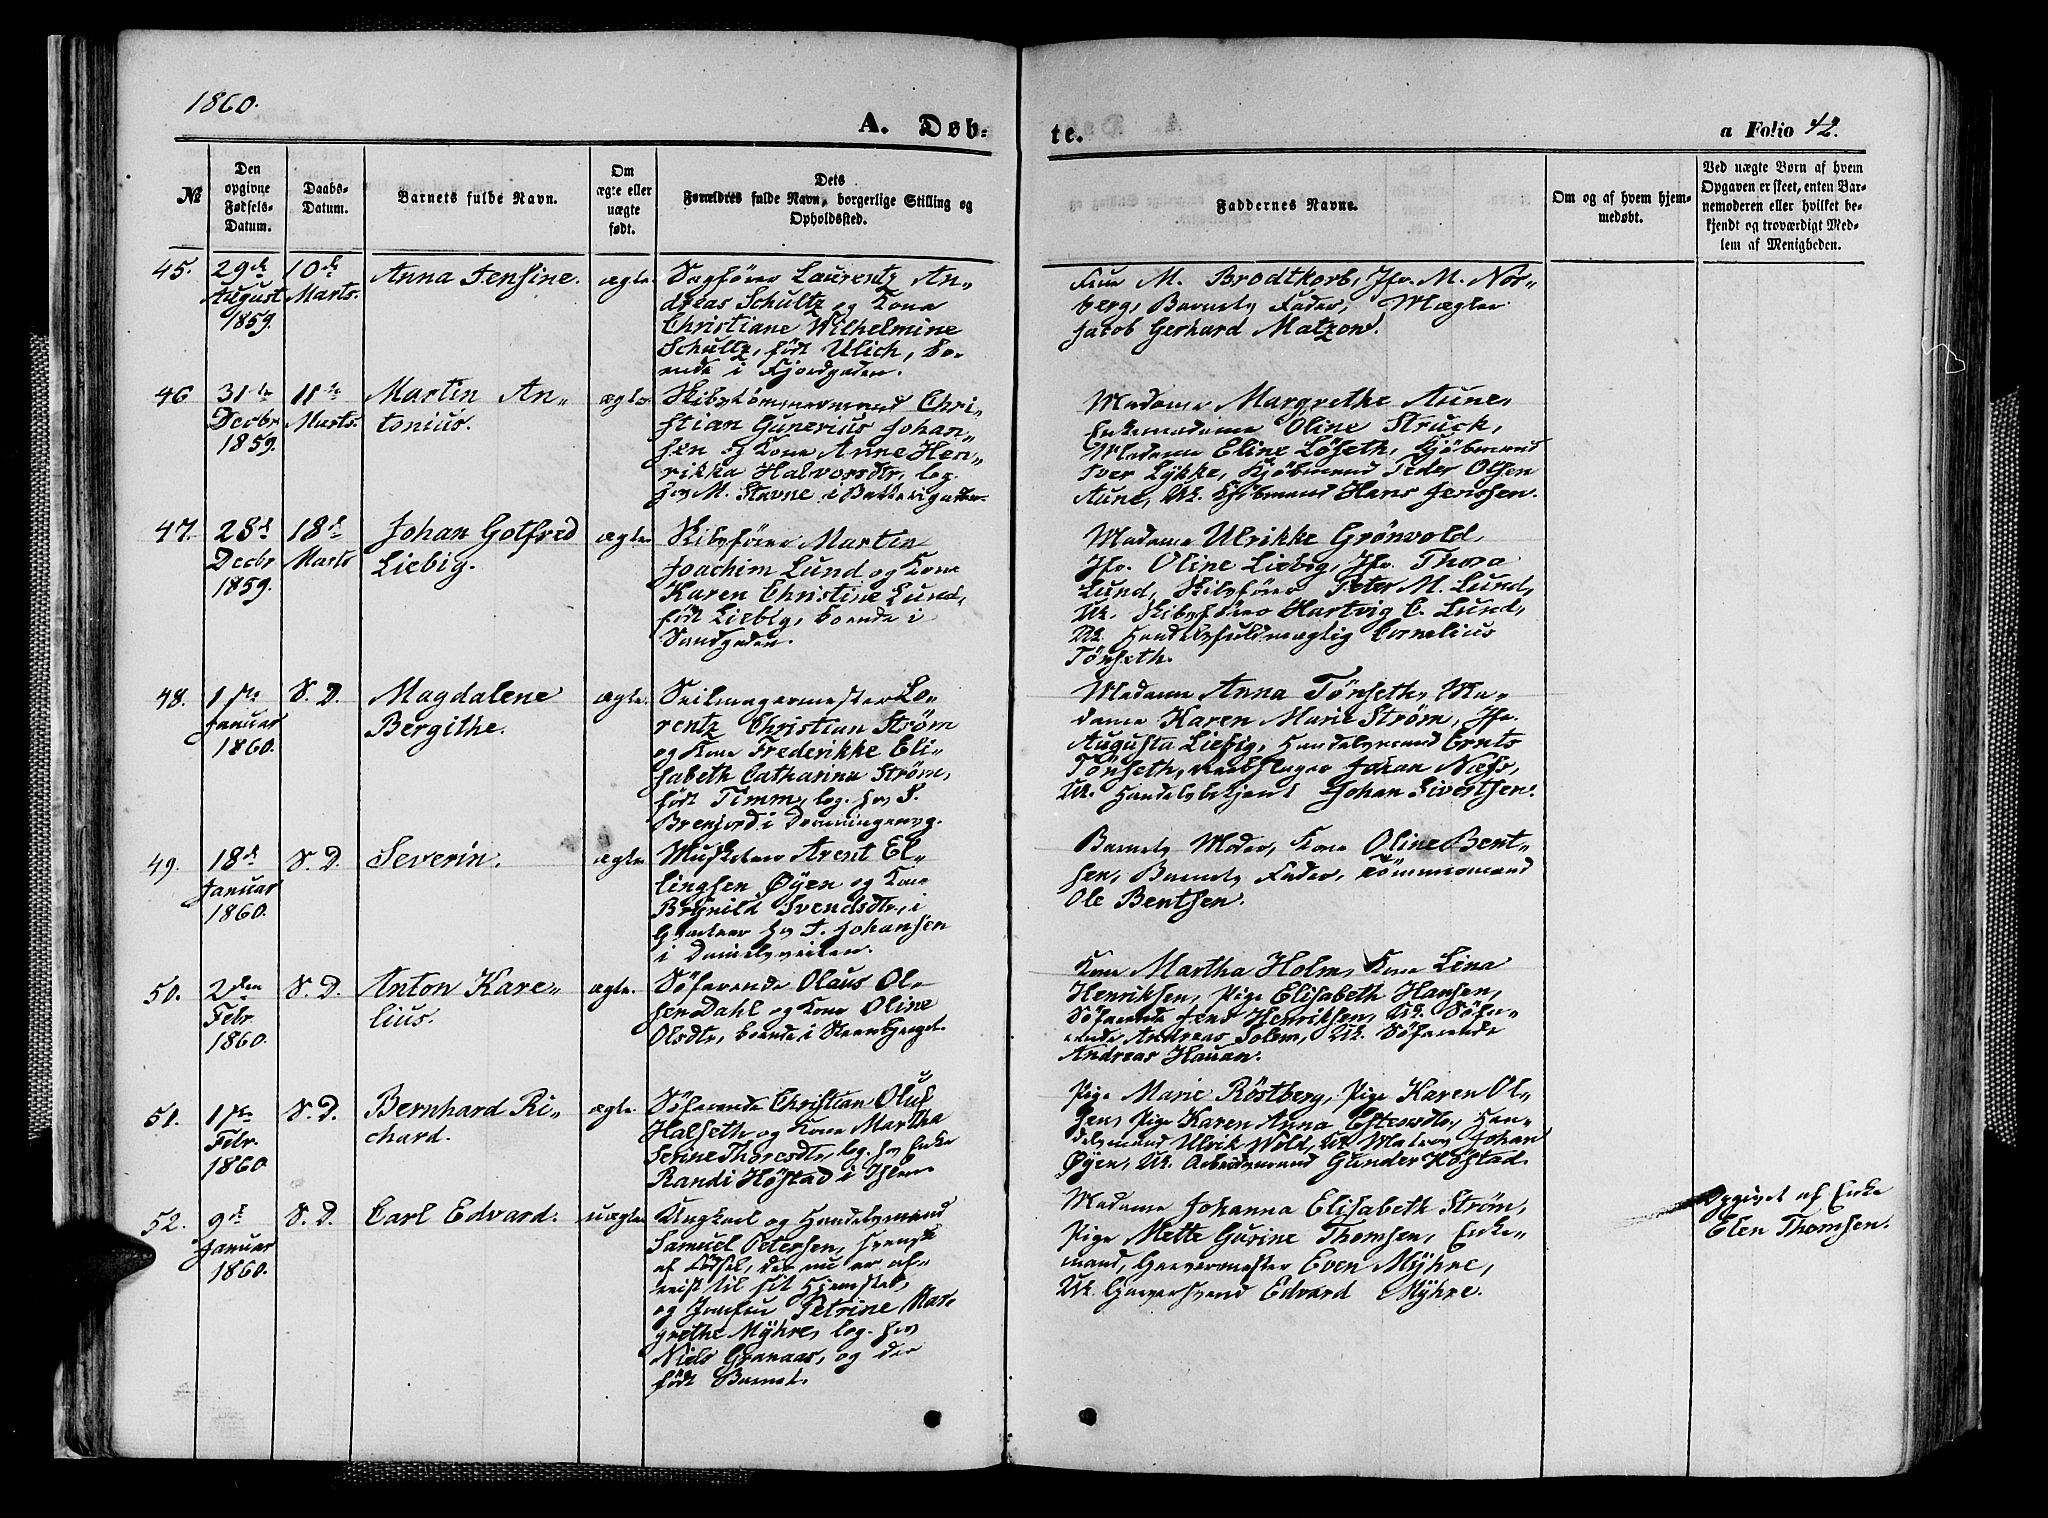 1860.
A. Døb-
te.
a Folio 42.
№
Den opgivne Fødsels-Datum.
Daabs-Datum.
Barnets fulde Navn.
Om ægte eller uægte født.
Dets Forældres fulde Navn, borgerlige Stilling og Opholdssted.
Faddernes Navne.
Om og af hvem hjem-medøbt.
Ved uægte Børn af hvem Opgaven er skeet, enten Bar-nemoderen eller hvilket be-kjendt og troværdigt Med-lem af Menigheden.
45.
29de
August
1859.
10de
Marts.
Anna Jensine.
ægte.
Sagfører Laurentz An-
dreas Schultz og Kone
Christiane Wilhelmine
Schultz, født Ulich, bo-
ende i Fjordgaden.
Frue M. Brodtkorb, Jfr. M. Nor-
berg, Barnets Fader, Mægler
Jacob Gerhard Matzow.
46
31te
Decbr
1859.
11te
Marts.
Martin An-
tonius.
ægte
Skibstømmermand Chri-
stian Gunerius Johan-
sen og Kone Anne Hen-
rikka Halvorsdtr, log.
hos M. Stavne i Batterigaden.
Madame Margrethe Aune,
Enkemadame Oline Struck,
Madame Eline Løseth, Kjøbmand
Iver Lykke, Kjøbmand Peder Olsen
Aune, Uk. Kjøbmand Hans Jenssen.
47.
28de
Decbr
1859.
18de
Marts
Johan Gotfred
Liebig.
ægte.
Skibsfører Martin
Joachim Lund og Kone
Karen Christine Lund,
født Liebig, boende i
Sandgaden.
Madame Ulrikke Grønvold,
Jfr. Oline Liebig, Jfr. Thora
Lund, Skibsfører Peter M. Lund,
Uk. Skibsfører Hartvig C. Lund,
Uk. Handelsfuldmægtig Cornelius
Tønseth.
48.
1ste
Januar
1860.
S. D.
Magdalene
Bergithe.
ægte.
Seilmagermester Lo-
rentz Christian Strøm
og Kone Frederikke Eli-
sabeth Catharina Strøm,
født Timm, log. hos S.
Brenjord i Dronningensg.
Madame Anna Tønseth, Ma-
dame Karen Marie Strøm, Jfr.
Augusta Liebig, Handelsmand Ernts
Tønseth, Rebslager Johan Næss,
Uk. Handelsbetjent Johan Sivertsen.
49.
18de
Januar
1860.
S. D.
Severin.
ægte.
Musketeer Arent El-
lingsen Øyen og Kone
Brynild Svendsdtr, i
Qvarteer hos T. Johansen
i Danielsveiten.
Barnets Moder, Kone Oline Bent-
sen, Barnets Fader, Tømmermand
Ole Bentsen.
50.
2den
Febr
1860.
S. D.
Anton Kare-
lius.
ægte.
Søfarende Olaus Ol-
sen Dahl og Kone Oline
Olsdtr, boende i Steenberget.
Kone Martha Holm, Kone Lina
Henriksen, Pige Elisabeth Hansen,
Søfarende Jens Henriksen, Uk. Søfa-
rende Andreas Solem, Uk. Søfarende
Andreas Hauan.
51.
1ste
Febr.
1860.
S. D.
Bernhard Ri-
chard.
ægte.
Søfarende Christian Oluf
Halseth og Kone Martha
Serine Thoresdtr, log. hos Enke
Randi Høstad i Ihlen.
Pige Marie Røstberg, Pige Karen Ol-
sen, Pige Karen Anna Estensdtr, Han-
delsmand Ulrik Wold, Uk. Matros Johan
Øyen, Uk. Arbeidsmand Gunder Høstad.
52.
9de
Januar
1860.
S. D.
Carl Edvard.
uægte
Ungkarl og Handelsmand
Samuel Petersen, svensk
af Fødsel, der nu er af-
reist til sit Hjemsted,
og Jomfru Petrine Mar-
grethe Myhre, log. hos
Niels Granaas, og der
født Barnet.
Madame Johanna Elisabeth Strøm,
Pige Mette Gurine Thomsen, Enke-
mand, Garvermester Even Myhre,
Uk. Garversvend Edvard Myhre.
Opgivet af Enke
Elen Thomsen.